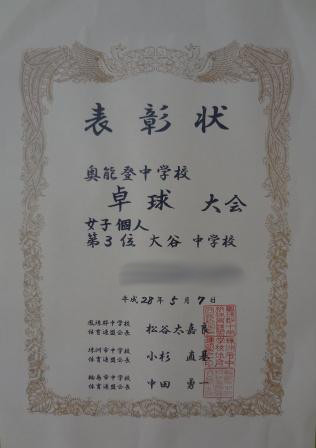 表彰状
奥能登中学校
卓球 大会
女子個人
第3位 大谷 中学校
平成28年5月7日
鳳珠郡中学校
体育連盟会長 松谷太嘉良
珠洲市中学校
体育連盟会長 小杉 直基
輪島市中学校
体育連盟会長 中田 勇一